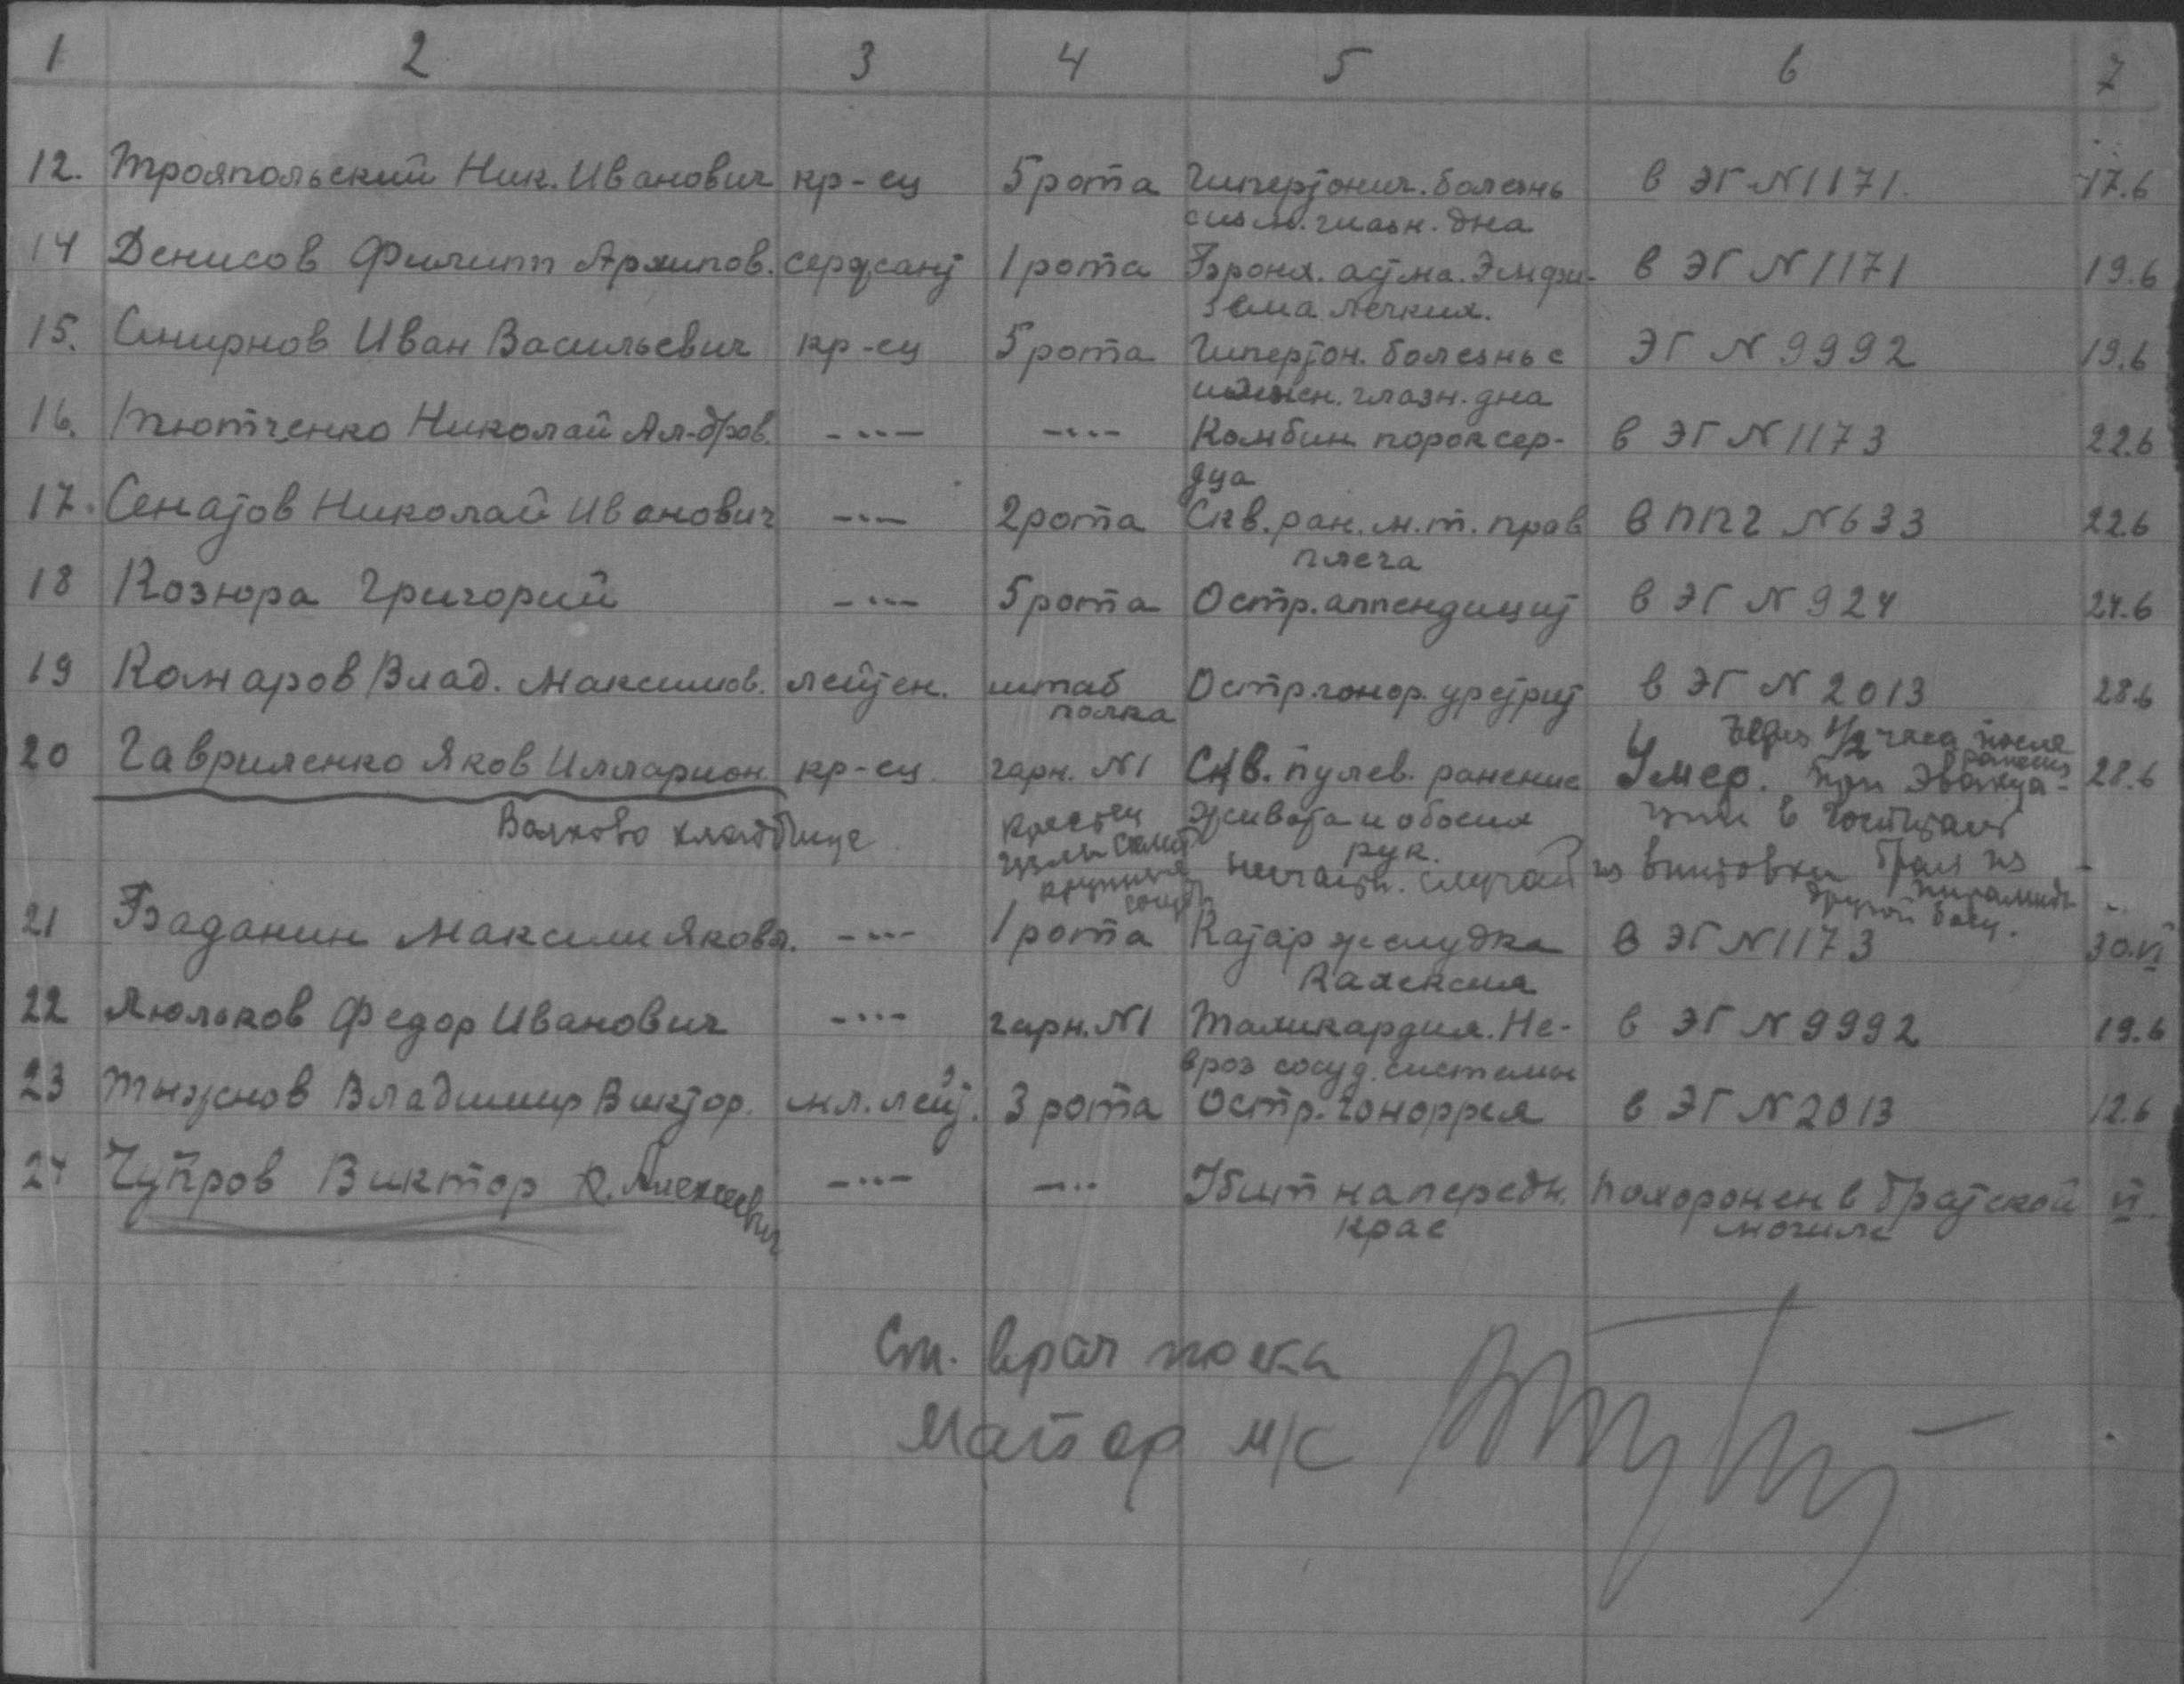 1 2 3 4 5 6 7
12. Трояпольский Ник. Иванович кр-ец 5 рота Гипертонич. болезнь в ЭГ N 1171. 17.6
с изм. глазн. дна
14 Денисов Филипп Архипов. сержант 1 рота Бронх. астма. Эмфи- в ЭГ N 1171 19.6
зема легких.
15. Смирнов Иван Васильевич кр-ец 5 рота Гипертон. болезнь с ЭГ N 9992 19.6
измен. глазн. дна
16. Тютченко Николай Ал-дров. -"- -"- Комбин. порок сер- в ЭГ N 1173 22.6
дца
17. Сенатов Николай Иванович -"- 2 рота Скв. ран. м. т. прав в ППГ N 633 22.6
плеча
18 Козюра Григорий -"- 5 рота Остр. аппендицит в ЭГ N 924 24.6
19 Комаров Влад. Максимов. лейтен. штаб Остр. гонор. уретрит в ЭГ N 2013 28.6
полка
через 1/2 часа после
ранения
20 Гавриленко Яков Илларион. кр-ец. гарн. N1 Скв. пулев. ранение Умер. при эвакуа- 28.6
живота и обоих ции в госпиталь
Волково кладбище
рук.
несчастн. случай из винтовки брал из
пирамиды
другой боец.
21 Баданин Максим Яковл. -"- 1 рота Катар желудка в ЭГ N 1173 30.VI
Кахексия
22 Люльков Федор Иванович -"- гарн. N1 Тахикардия. Не- в ЭГ N 9992 19.6
вроз сосуд. системы
23 Тнжнов Владимир Виктор. мл. лейт. 3 рота Остр. гоноррея в ЭГ N 2013 12.6
24 Чупров Виктор Алексеевич -"- -"- Убит на передн. Похоронен в братской VI.
крае могиле
Ст. врач полка
Майор м/с